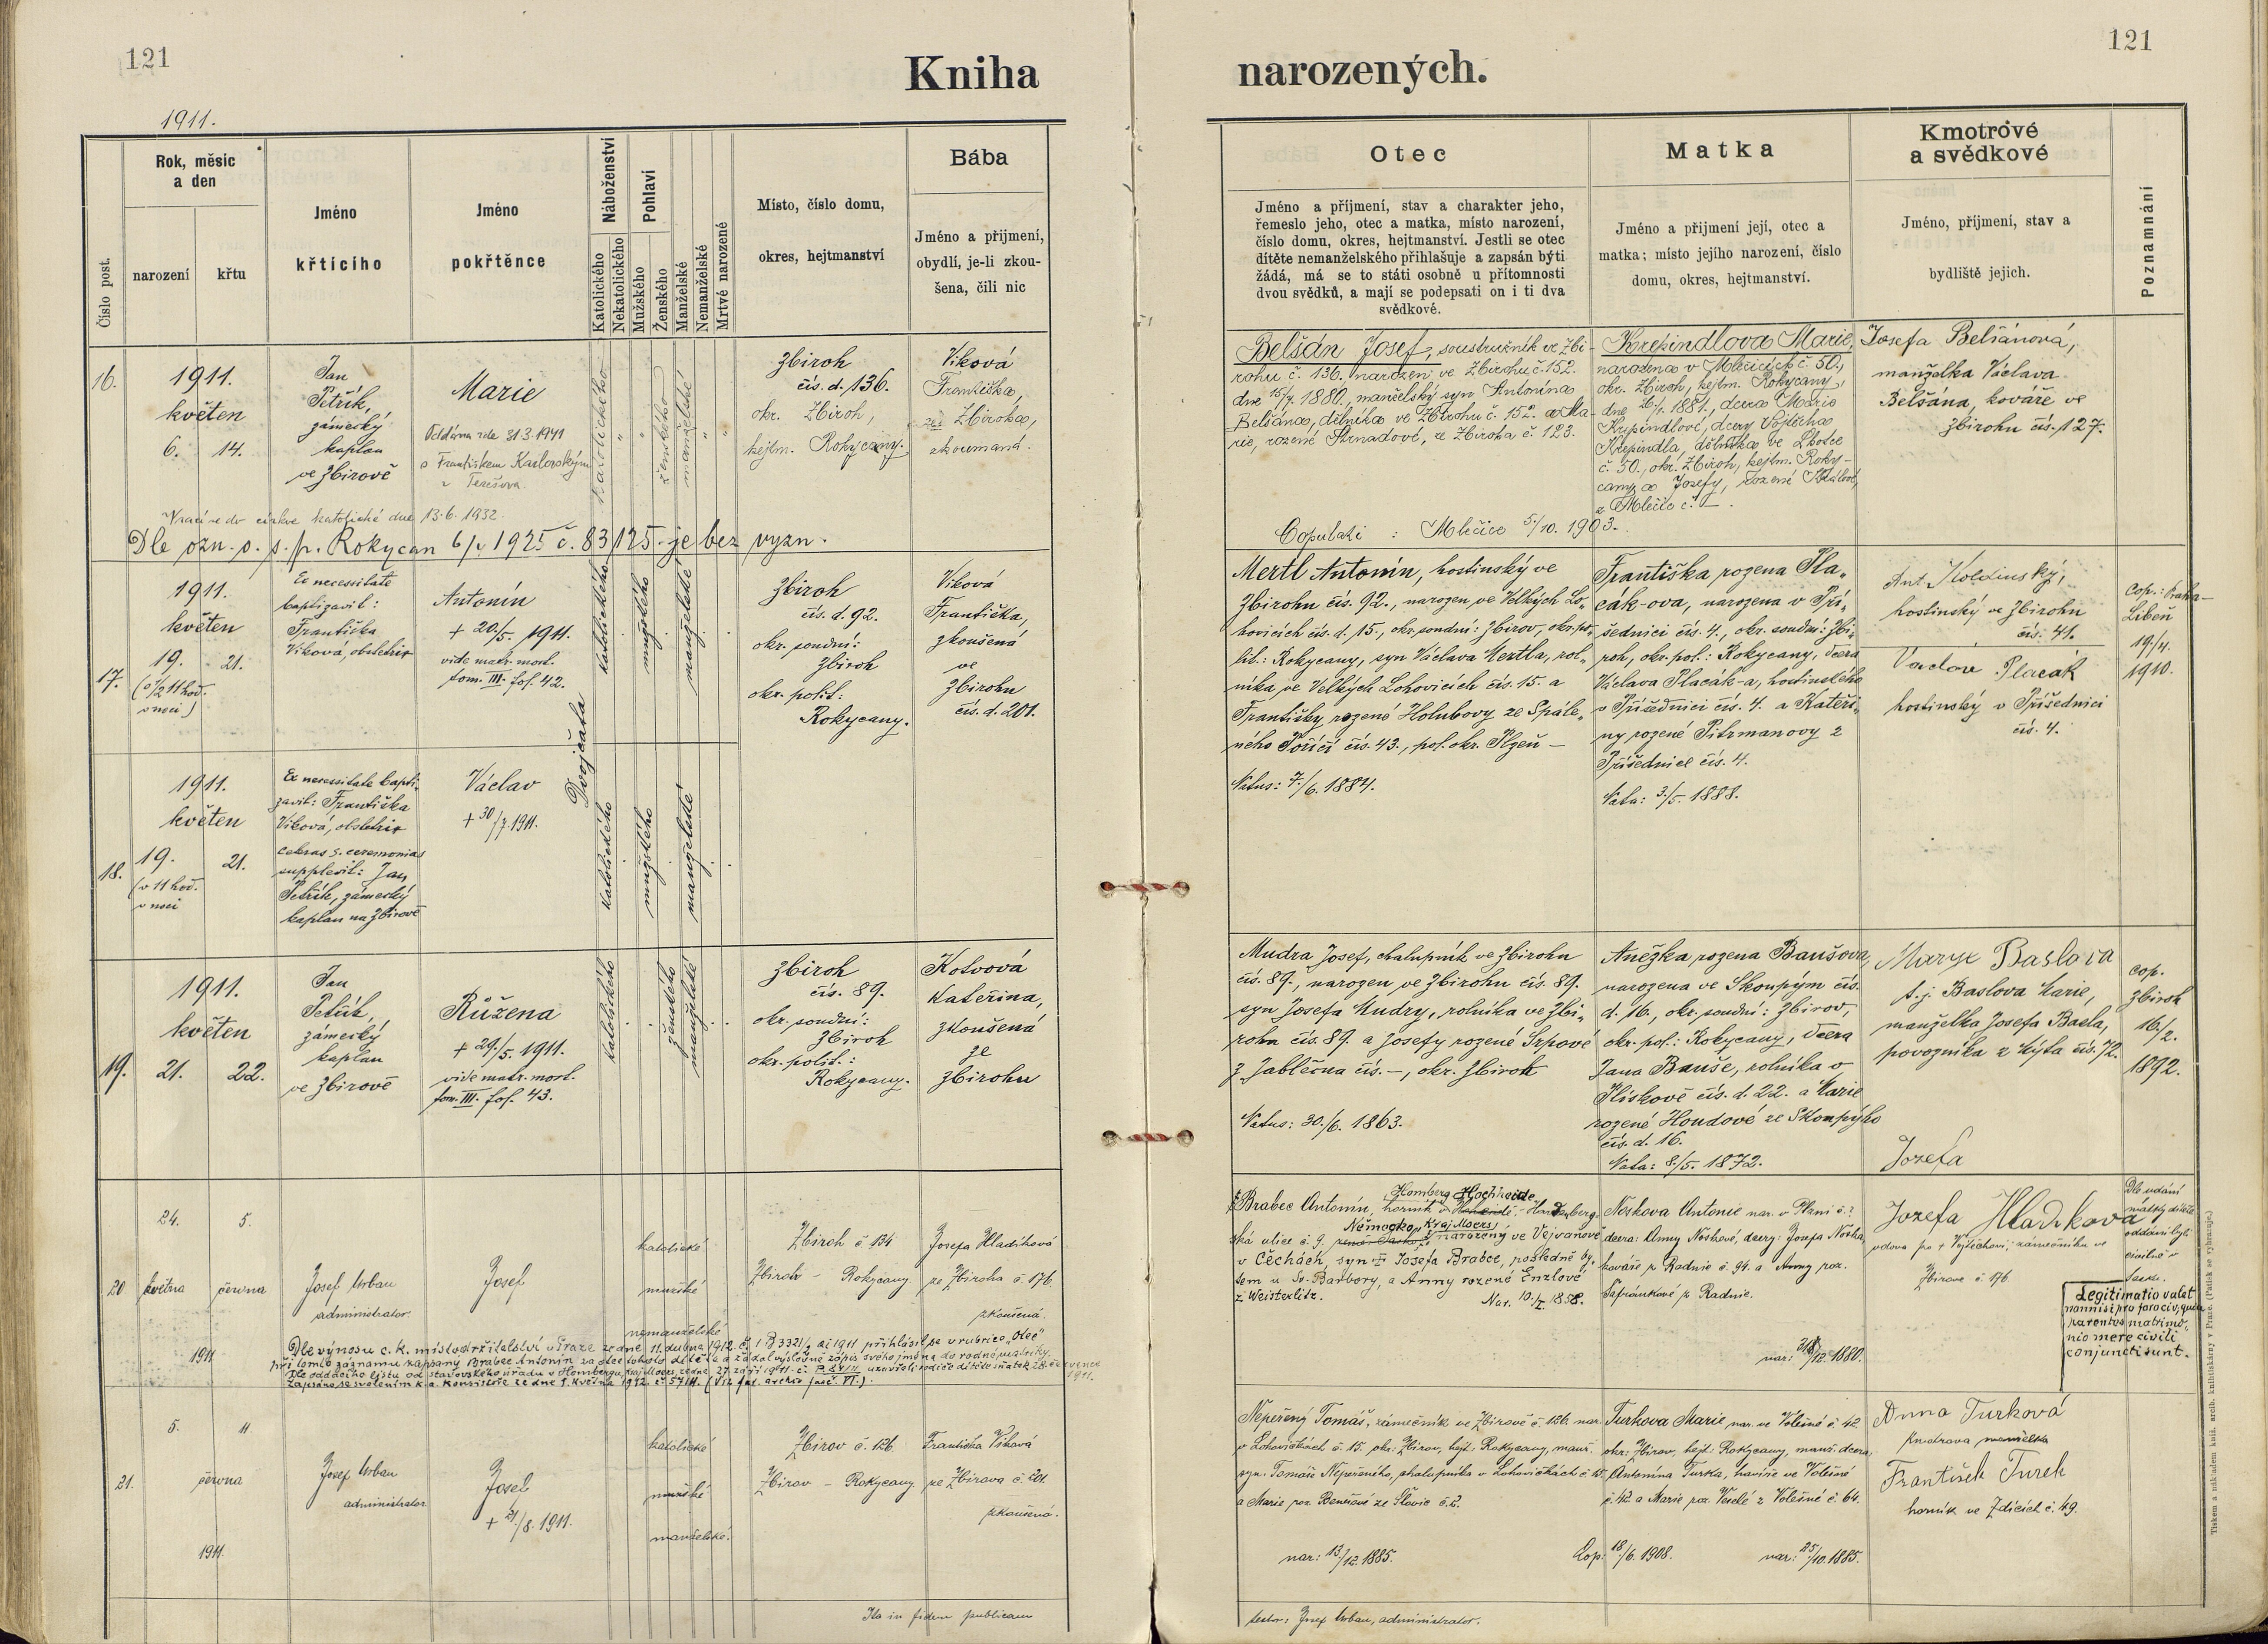 121
Kniha
1911.
Číslo post.
Rok, měsíc
a den
narození
křtu
Jméno
křtícího
Jméno
pokřtěnce
Náboženství
Katolického
Nekatolického
Pohlaví
Mužského
Ženského
Manželské
Nemanželské
Mrtvé narozené
Místo, číslo domu,
okres, hejtmanství
Bába
Jméno a přijmení,
obydlí, je-li zkou-
šena, čili nic
16.
1911.
květen
6. 14.
Jan
Petřík,
zámecký
kaplan
ve Zbirově
Marie
Oddána dne 31.3.1941
s Františkem Karlovským
z Terešova
katolického
ženského
manželské
Zbiroh
čís. d. 136.
okr. Zbiroh,
hejtm. Rokycany.
Viková
Františka,
ze Zbiroha,
zkoumaná.
Vrací se do církve katolické dne 13.6.1932.
Dle ozn. o. s. p. Rokycan 6/V 1925 č. 83/125 je bez vyzn.
17.
1911.
květen
19. 21.
(o 1/2 11 hod.
v noci)
Ex necessitate
baptizavit:
Františka
Viková, obstetrix
Antonín
+ 20./5. 1911.
vide matr. mort.
tom. III. fol. 42.
Dvojčata
katolického
mužského
manželské
Zbiroh
čís. d. 92.
okr. soudní:
Zbiroh
okr. polit:
Rokycany.
Viková
Františka,
zkoušená
ve
Zbirohu
čís. d. 201.
18.
1911.
květen
19. 21.
(v 11 hod.
v noci
Ex necessitate bapti-
zavit: Františka
Viková, obstetrix
ceteras s. ceremonias
supplevit: Jan
Petřík, zámecký
kaplan na Zbirově
Václav
+ 30/7. 1911.
katolického
mužského
manželské
19.
1911.
květen
21. 22.
Jan
Petřík,
zámecký
kaplan
ve Zbirově
Růžena
+ 29./5. 1911.
vide matr. mort.
tom. III. fol. 43.
katolického
ženského
manželské
Zbiroh
čís. 89.
okr. soudní:
Zbiroh
okr. polit.:
Rokycany.
Kotvová
Kateřina,
zkoušená
ze
Zbirohu
24. 5.
20 května června
1911
Josef Urban
administrator.
Josef
katolické
mužské
nemanželské
Zbiroh č 134
Zbiroh – Rokycany
Josefa Hladíková
ze Zbiroha č. 176.
zkoušená.
Dle výnosu c. k. místodržitelství v Praze ze dne 11. dubna 1912. č. 1 B 3321/2 ai 1911 přihlásil se v rubrice „Otec"
při tomto záznamu zapsaný Brabec Antonín za otce tohoto dítěte a žádal výslovně zápis svého jména do rodné matriky.
5. 11.
21. června
1911.
Josef Urban
administrator
Josef
+ 21/8. 1911.
katolické
mužské
manželské.
Zbirov č. 126.
Zbirov – Rokycany.
Františka Viková
ze Zbirova č. 201.
zkoušená.
Ita in fidem publicam
121
narozených.
Otec
Jméno a příjmení, stav a charakter jeho,
řemeslo jeho, otec a matka, místo narození,
číslo domu, okres, hejtmanství. Jestli se otec
dítěte nemanželského přihlašuje a zapsán býti
žádá, má se to státi osobně u přítomnosti
dvou svědků, a mají se podepsati on i ti dva
svědkové.
Matka
Jméno a přijmení její, otec a
matka; místo jejího narození, číslo
domu, okres, hejtmanství.
Kmotrové
a svědkové
Jméno, příjmení, stav a
bydliště jejich.
Poznamnání
Belšán Josef, soustružník ve Zbi-
rohu č. 136, narozen ve Zbirohu č. 152.
dne 15/7. 1880., manželský syn Antonína
Belšána, dělníka ve Zbirohu č. 152. a Ma-
rie, rozené Strnadové, ze Zbiroha č. 123.
Copulati : Mlečice 5/10. 1903.
Křepindlova Marie,
narozena v Mlečicích č. 50,
okr. Zbiroh, hejtm. Rokycany,
dne 26/1. 1881., dcera Marie
Křepindlové, dcery Vojtěcha
Křepindla, dělníka ve Lhotce
č. 50., okr. Zbiroh, hejtm. Roky-
cany a Josefy, rozené Králové,
z Mlečic č. –.
Josefa Belšánová,
manželka Václava
Belšána, kováře ve
Zbirohu čís. 127.
Mertl Antonín, hostinský ve
Zbirohu čís. 92., narozen ve Velkých Lo-
hovicích čís. d. 15., okr. soudní: Zbirov, okr. po-
lit.: Rokycany, syn Václava Mertla, rol-
níka ve Velkých Lohovicích čís. 15. a
Františky rozené Holubovy ze Spále-
ného Poříčí čís. 43., pol. okr. Plzeň –
Natus: 7./6. 1884.
Františka rozena Pla-
cák-ova, narozena v Pří-
šednici čís. 4., okr. soudní: Zbi-
roh, okr. pol.: Rokycany, dcera
Václava Placák-a, hostinského
v Příšednici čís. 4. a Kateři-
ny rozené Pitrmanovy z
Příšednice čís. 4.
Nata: 3./5. 1888.
Ant. Koldinský,
hostinský ve Zbirohu
čís. 41.
Václav Placák
hostinský v Příšednici
čís. 4.
Cop.: Praha-
Libeň
19./4.
1910.
Mudra Josef, chalupník ve Zbirohu
čís. 89., narozen ve Zbirohu čís. 89.
syn Josefa Mudry, rolníka ve Zbi-
rohu čís. 89. a Josefy rozené Srpové
z Jablečna čís. –, okr. Zbiroh
Natus: 30./6. 1863.
Anežka rozena Baušova,
narozena ve Skoupým čís.
d. 16., okr. soudní: Zbirov,
okr. pol.: Rokycany, dcera
Jana Bauše, rolníka v
Plískově čís. d. 22. a Marie
rozené Houdové ze Skoupýho
čís. d. 16.
Nata: 8./5. 1872.
Marye Baslova
t. j. Baslova Marie,
manželka Josefa Basla,
povozníka z Kýsta čís. 72.
Jozefa
cop.
Zbiroh
16./2.
1892.
Homberg Hochheide
Brabec Antonín, horník v
Německo, Kraj Moers,
ulice č. 9. narozený ve Vejvanově
v Čechách, syn Josefa Brabce, posledně by-
tem u Sv. Barbory, a Anny rozené Enzlové
z Weisterlitz.
Nar. 10./I. 1858.
Noskova Antonie nar. v Plani č. ?
dcera: Anny Noskové, dcery: Josefa Noska,
kováře z Radnic č. 94. a Anny roz.
Šafránkové z Radnic.
nar: 31/12. 1880.
Jozefa Hladikova
vdova po + Vojtěchovi, zámečníku ve
Zbirově č. 176.
Dle udání
matky dítěte
oddáni byli
civilně v
Legitimatio valet
nonnisi pro foro civ, quia
parentes matrimo-
nio mere civili
conjuncti sunt.
Nepeřený Tomáš, zámečník ve Zbirově č. 126. nar.
v Lohovičkách č. 15. okr: Zbirov, hejt: Rokycany, manž.
syn: Tomáše Nepeřeného, chalupníka v Lohovičkách č. 15.
a Marie roz. Benešové ze Slavic č. 2.
nar: 13/12. 1885.
Cop: 18/6. 1908.
Turkova Marie nar. ve Volešné č. 42
okr: Zbirov, hejt: Rokycany, manž. dcera:
Antonína Turka, havíře ve Volešné
č. 42 a Marie roz. Veselé z Volešné č. 64.
nar: 25/10. 1885.
Anna Turková
František Turek
horník ve Zdicích č. 49.
testor: Josef Urban, administrator.
Tiskem a nákladem kníž. arcib. knihtiskárny v Praze. (Patisk se vyhrazuje.)